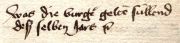 was die burger gelten sullend
dess selben Jars